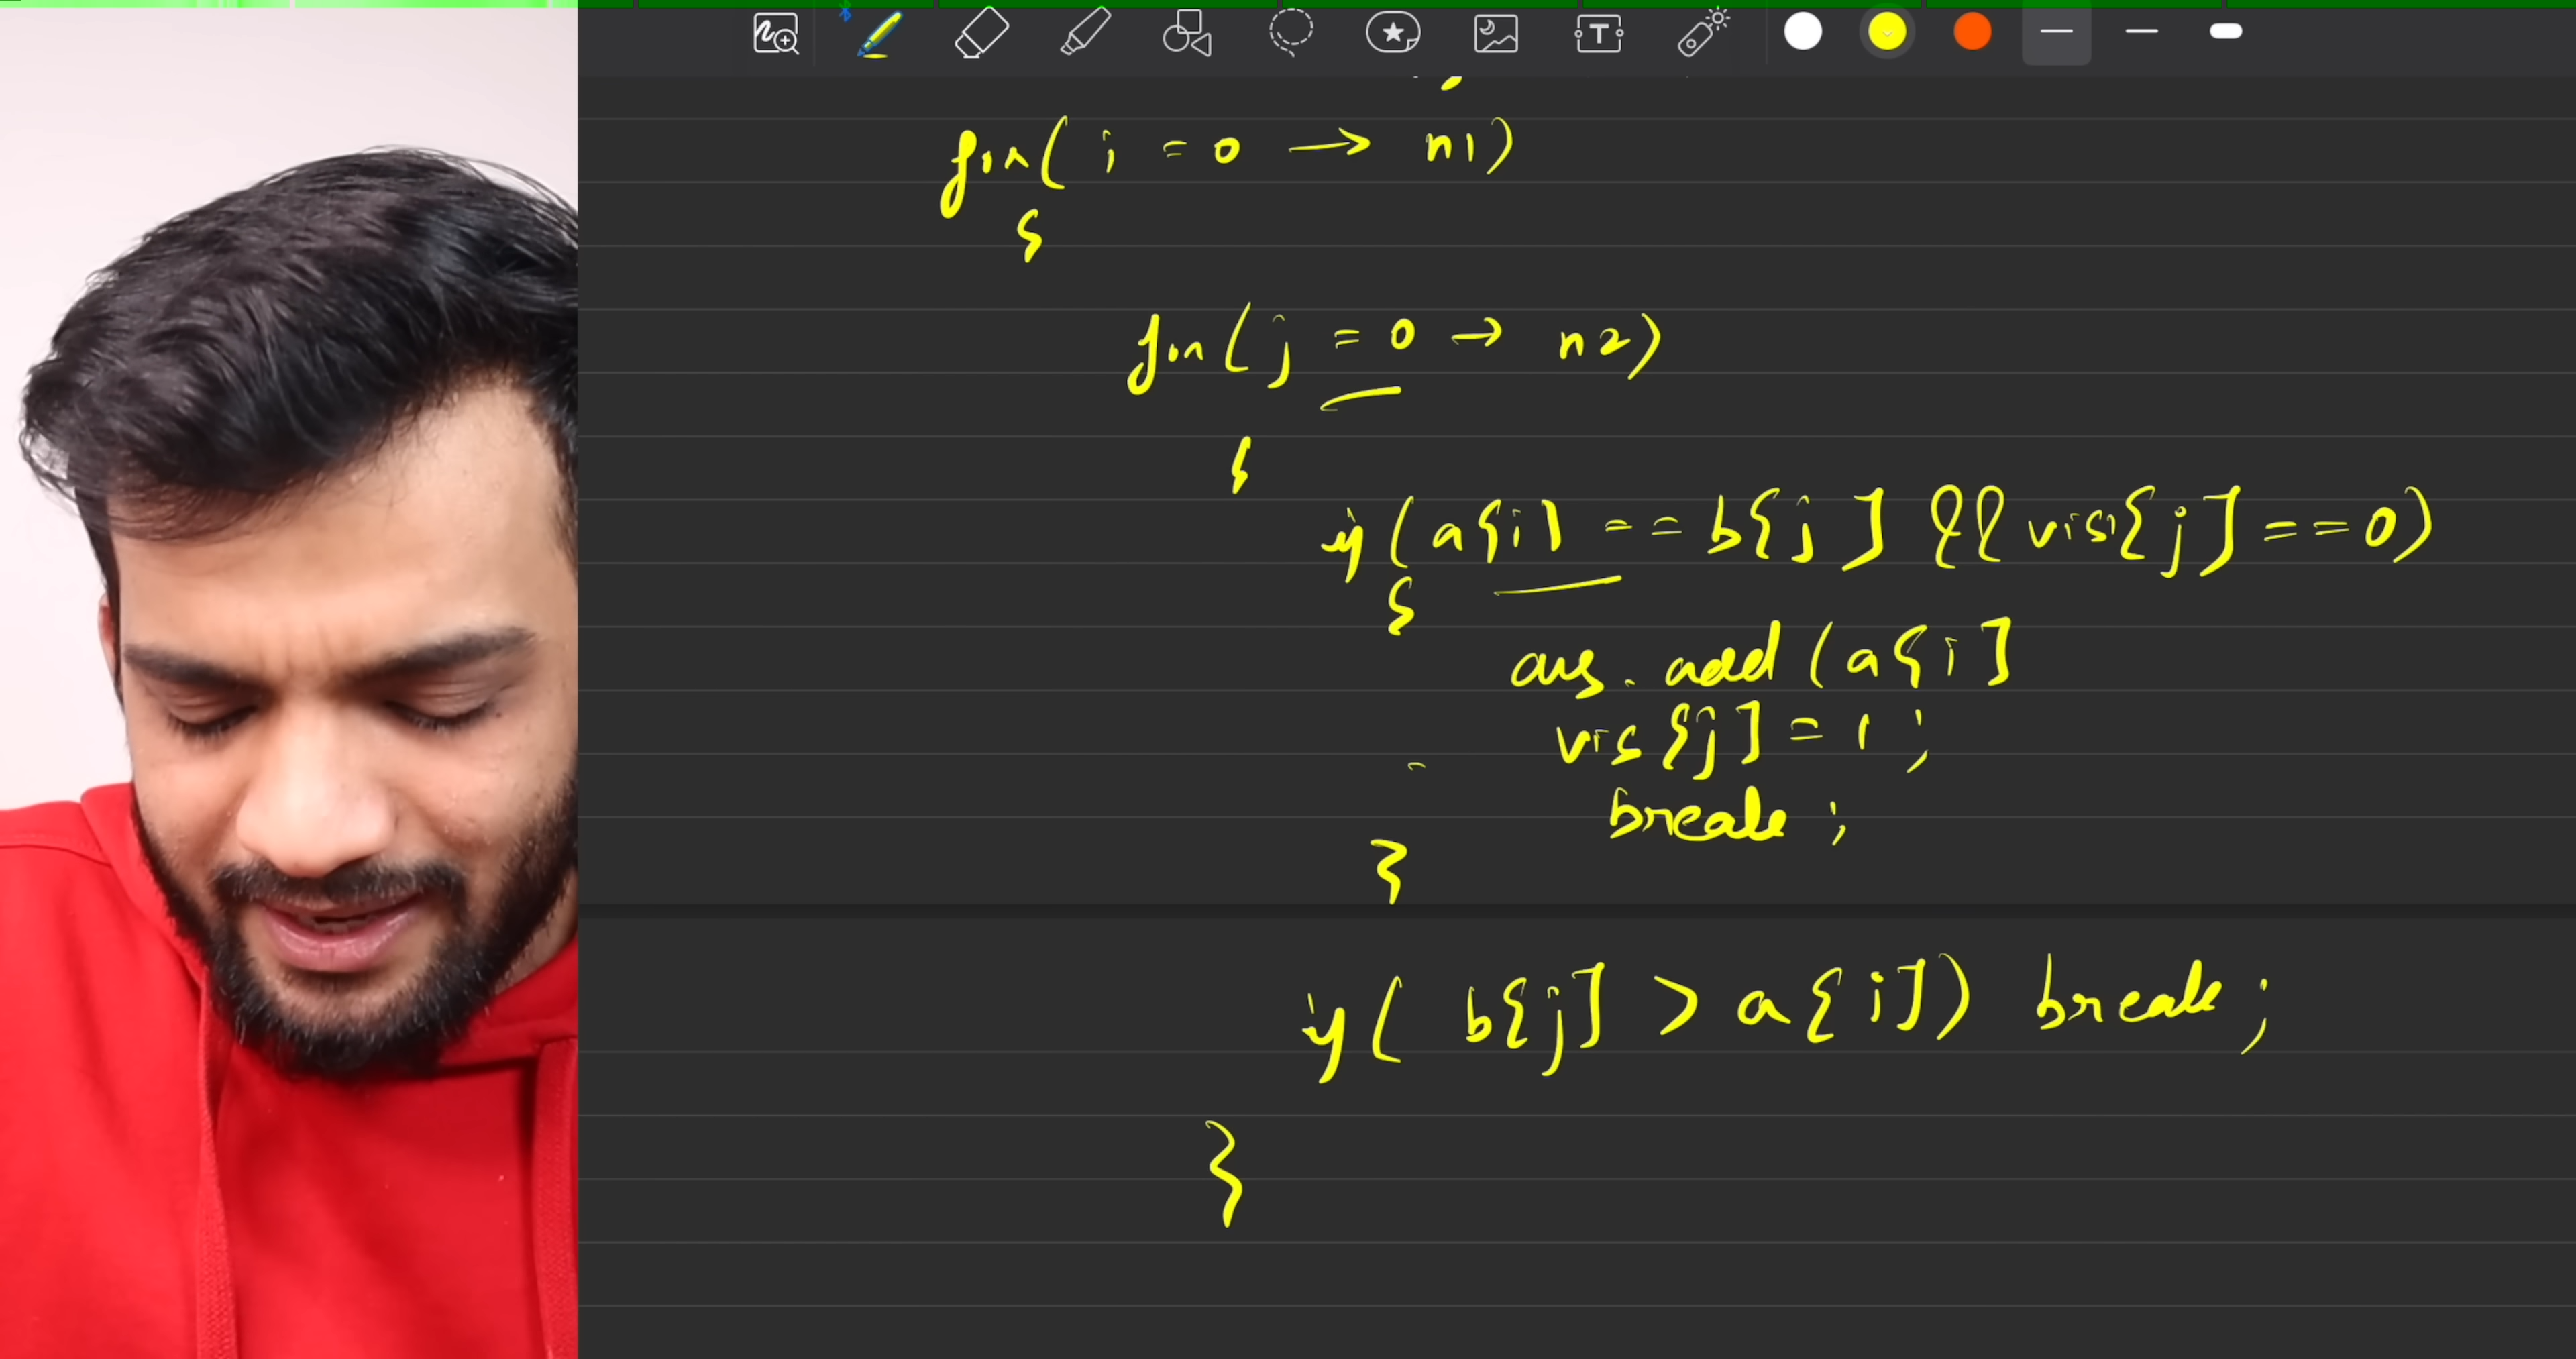 for( i = 0 → n1)
{
for( j = 0 → n2)
{
if( a[i] == b[j] && vis[j] == 0)
{
ans. add (a[i]
vis[j] = 1 ;
break ;
}
if( b[j] > a[i]) break ;
}